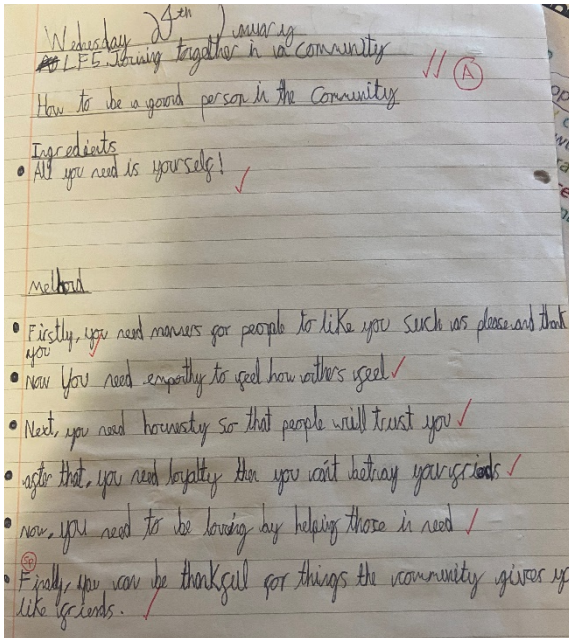 Wednesday 24th January
LF5 Joining together in a community
A
How to be a good person in the Community
Ingredients
• All you need is yourself!
Method
• Firstly, you need manners for people to like you such as please and thank
you
• Now You need empathy to feel how others feel
• Next, you need hounesty so that people will trust you
• after that, you need loyalty then you won't betray your friends
• now, you need to be loving by helping those in need
Sp
• Finally, you can be thankful for things the community gives yo
like friends.